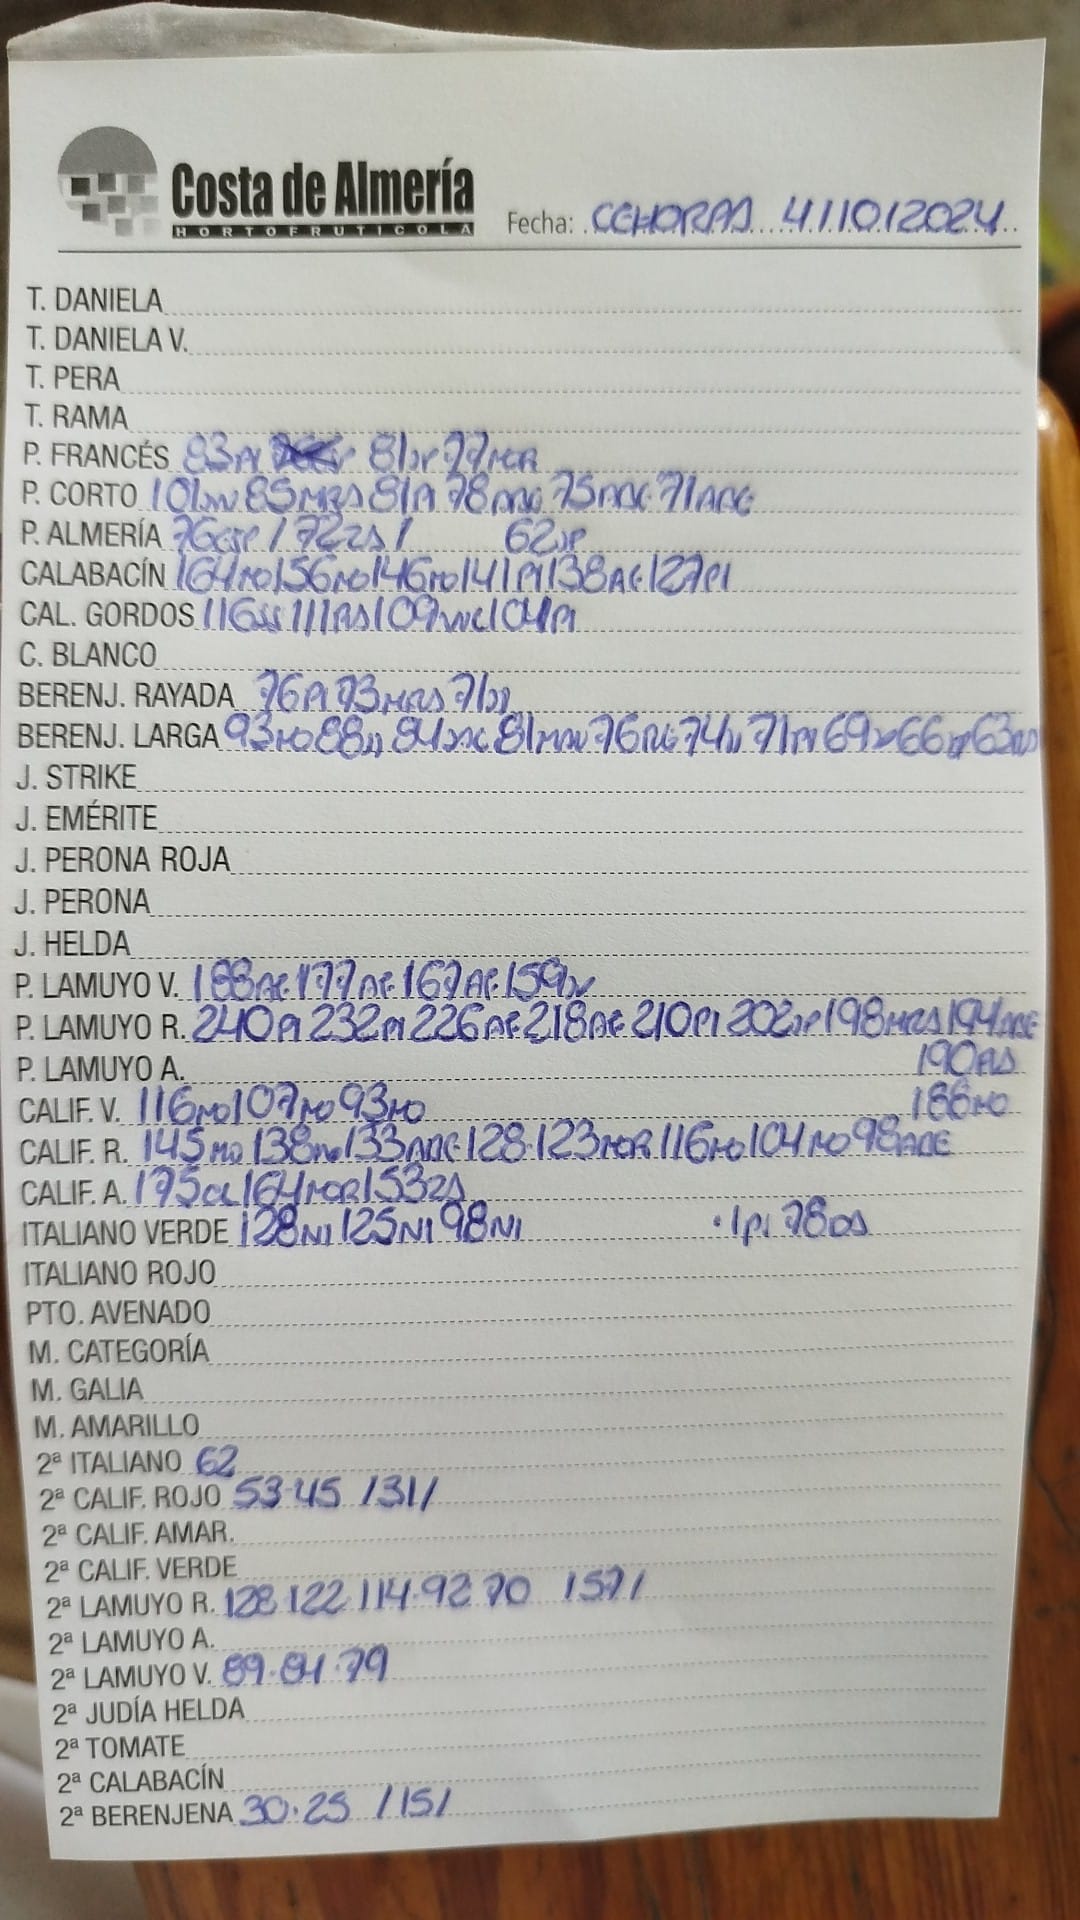 Costa de Almería
HORTOFRUTICOLA
Fecha: CEHORPA 4/10/2024
T. DANIELA
T. DANIELA V.
T. PERA
T. RAMA
P. FRANCÉS 83PI 81JP 77MOR
P. CORTO 101 85MRS 81PI 78 75 71AGE
P. ALMERÍA 76 / 72ZS / 62JP
CALABACÍN 164MO 156MO 146MO 141PI 138AE 127PI
CAL. GORDOS 116 111 109 104PI
C. BLANCO
BERENJ. RAYADA 76PI 73MRS 71
BERENJ. LARGA 93MO 88 84 81 76 74 71PI 69 66 63
J. STRIKE
J. EMÉRITE
J. PERONA ROJA
J. PERONA
J. HELDA
P. LAMUYO V. 188AE 177AE 167AE 159
P. LAMUYO R. 240PI 232PI 226AE 218AE 210PI 202JP 198MRS 194AGE
P. LAMUYO A. 190AS
CALIF. V. 116MO 107MO 93MO 186MO
CALIF. R. 145MO 138MO 133AGE 128 · 123MOR 116MO 104MO 98AGE
CALIF. A. 175CL 164MOR 153ZS
ITALIANO VERDE 128NI 125NI 98NI 78
ITALIANO ROJO
PTO. AVENADO
M. CATEGORÍA
M. GALIA
M. AMARILLO
2ª ITALIANO 62
2ª CALIF. ROJO 53·45 /31/
2ª CALIF. AMAR.
2ª CALIF. VERDE
2ª LAMUYO R. 128 122 114·92 70 /57/
2ª LAMUYO A.
2ª LAMUYO V. 89·84·79
2ª JUDÍA HELDA
2ª TOMATE
2ª CALABACÍN
2ª BERENJENA 30·25 /15/